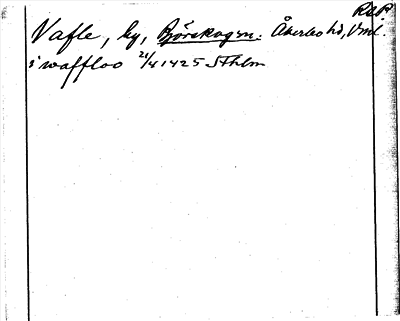 RAP.
Vafle, by, Björskog sn. Åkerbo hd, Vml.
i waffloo 21/4 1425 Sthlm